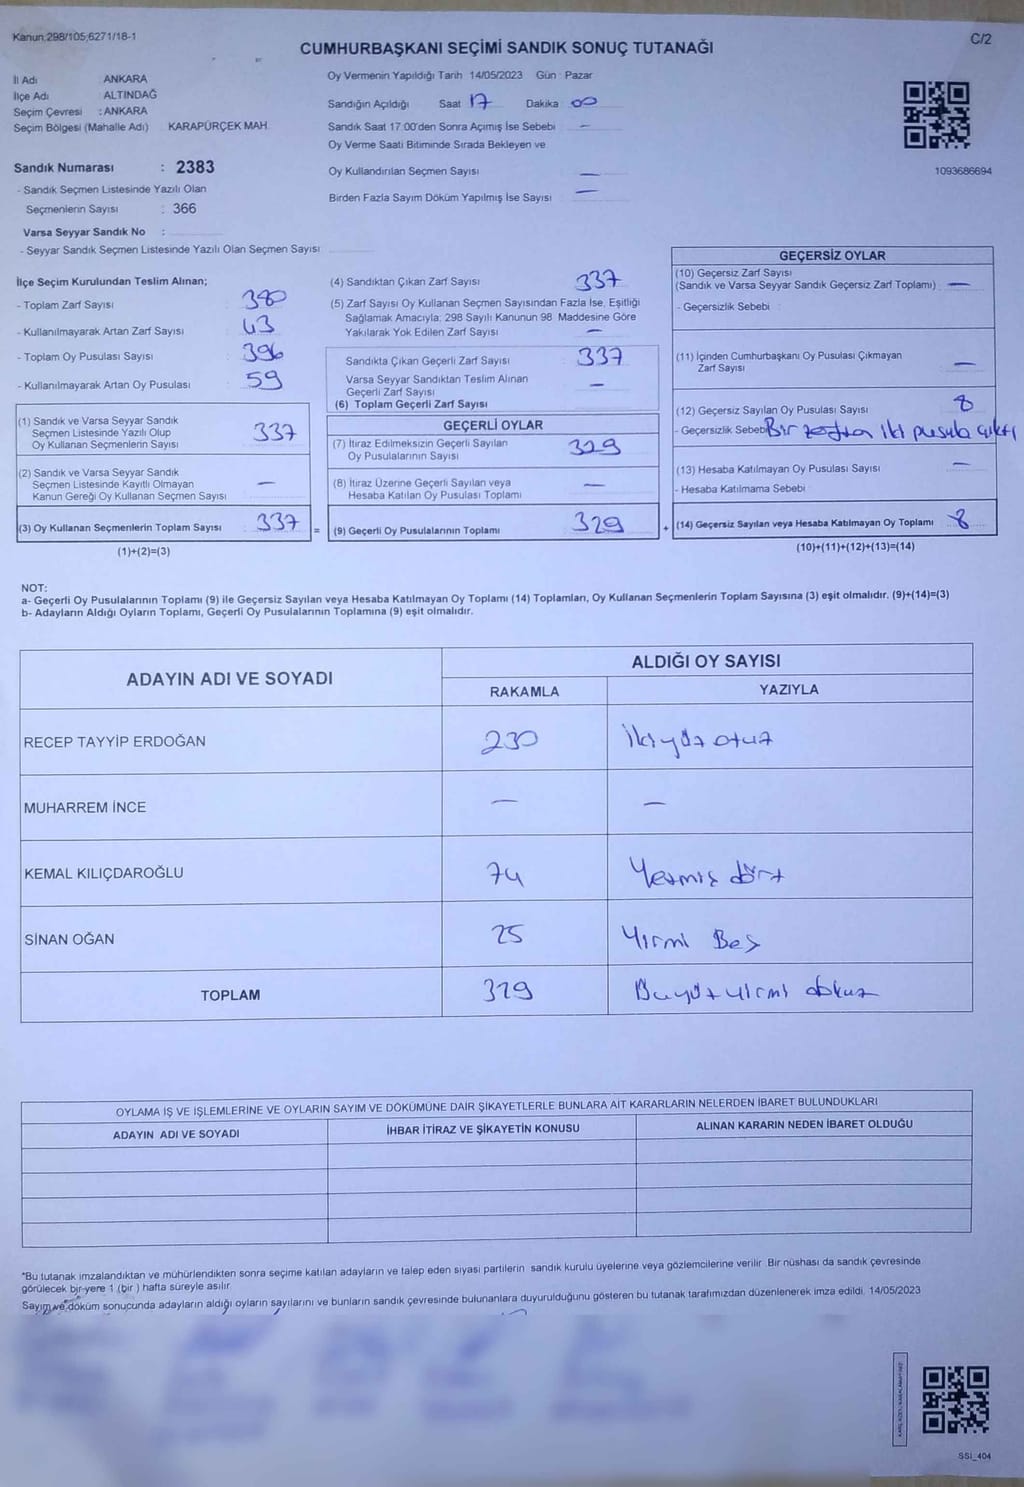 Kanun;298/105;6271/18-1
C/2
CUMHURBAŞKANI SEÇİMİ SANDIK SONUÇ TUTANAĞI
İl Adı ANKARA
İlçe Adı ALTINDAĞ
Seçim Çevresi : ANKARA
Seçim Bölgesi (Mahalle Adı) KARAPÜRÇEK MAH.
Sandık Numarası : 2383
- Sandık Seçmen Listesinde Yazılı Olan
Seçmenlerin Sayısı : 366
Varsa Seyyar Sandık No :
- Seyyar Sandık Seçmen Listesinde Yazılı Olan Seçmen Sayısı
Oy Vermenin Yapıldığı Tarih 14/05/2023 Gün : Pazar
Sandığın Açıldığı Saat 17 Dakika 00
Sandık Saat 17:00'den Sonra Açımış İse Sebebi —
Oy Verme Saati Bitiminde Sırada Bekleyen ve
Oy Kullandırılan Seçmen Sayısı —
Birden Fazla Sayım Döküm Yapılmış İse Sayısı —
1093686694
İlçe Seçim Kurulundan Teslim Alınan;
- Toplam Zarf Sayısı 380
- Kullanılmayarak Artan Zarf Sayısı 43
- Toplam Oy Pusulası Sayısı : 396
- Kullanılmayarak Artan Oy Pusulası : 59
(1) Sandık ve Varsa Seyyar Sandık
Seçmen Listesinde Yazılı Olup
Oy Kullanan Seçmenlerin Sayısı 337
(2) Sandık ve Varsa Seyyar Sandık
Seçmen Listesinde Kayıtlı Olmayan
Kanun Gereği Oy Kullanan Seçmen Sayısı —
(3) Oy Kullanan Seçmenlerin Toplam Sayısı 337
(1)+(2)=(3)
=
(4) Sandıktan Çıkan Zarf Sayısı 337
(5) Zarf Sayısı Oy Kullanan Seçmen Sayısından Fazla İse, Eşitliği
Sağlamak Amacıyla; 298 Sayılı Kanunun 98. Maddesine Göre
Yakılarak Yok Edilen Zarf Sayısı —
Sandıkta Çıkan Geçerli Zarf Sayısı 337
Varsa Seyyar Sandıktan Teslim Alınan
Geçerli Zarf Sayısı —
(6) Toplam Geçerli Zarf Sayısı
GEÇERLİ OYLAR
(7) İtiraz Edilmeksizin Geçerli Sayılan
Oy Pusulalarının Sayısı 329
(8) İtiraz Üzerine Geçerli Sayılan veya
Hesaba Katılan Oy Pusulası Toplamı —
(9) Geçerli Oy Pusulalarının Toplamı 329
+
GEÇERSİZ OYLAR
(10) Geçersiz Zarf Sayısı
(Sandık ve Varsa Seyyar Sandık Geçersiz Zarf Toplamı) : —
- Geçersizlik Sebebi :
(11) İçinden Cumhurbaşkanı Oy Pusulası Çıkmayan
Zarf Sayısı —
(12) Geçersiz Sayılan Oy Pusulası Sayısı 8
- Geçersizlik Sebebi Bir zarftan iki pusula çıktı
(13) Hesaba Katılmayan Oy Pusulası Sayısı —
- Hesaba Katılmama Sebebi
(14) Geçersiz Sayılan veya Hesaba Katılmayan Oy Toplamı 8
(10)+(11)+(12)+(13)=(14)
NOT:
a- Geçerli Oy Pusulalarının Toplamı (9) ile Geçersiz Sayılan veya Hesaba Katılmayan Oy Toplamı (14) Toplamları, Oy Kullanan Seçmenlerin Toplam Sayısına (3) eşit olmalıdır. (9)+(14)=(3)
b- Adayların Aldığı Oyların Toplamı, Geçerli Oy Pusulalarının Toplamına (9) eşit olmalıdır.
ADAYIN ADI VE SOYADI ALDIĞI OY SAYISI
RAKAMLA YAZIYLA
RECEP TAYYİP ERDOĞAN 230 İkiyüz otuz
MUHARREM İNCE — —
KEMAL KILIÇDAROĞLU 74 Yetmiş dört
SİNAN OĞAN 25 Yirmi Beş
TOPLAM 329 yirmi dokuz
OYLAMA İŞ VE İŞLEMLERİNE VE OYLARIN SAYIM VE DÖKÜMÜNE DAİR ŞİKAYETLERLE BUNLARA AİT KARARLARIN NELERDEN İBARET BULUNDUKLARI
ADAYIN ADI VE SOYADI İHBAR İTİRAZ VE ŞİKAYETİN KONUSU ALINAN KARARIN NEDEN İBARET OLDUĞU
*Bu tutanak imzalandıktan ve mühürlendikten sonra seçime katılan adayların ve talep eden siyasi partilerin sandık kurulu üyelerine veya gözlemcilerine verilir. Bir nüshası da sandık çevresinde
görülecek bir yere 1 (bir ) hafta süreyle asılır.
Sayım ve döküm sonucunda adayların aldığı oyların sayılarını ve bunların sandık çevresinde bulunanlara duyurulduğunu gösteren bu tutanak tarafımızdan düzenlenerek imza edildi. 14/05/2023
SSI_404